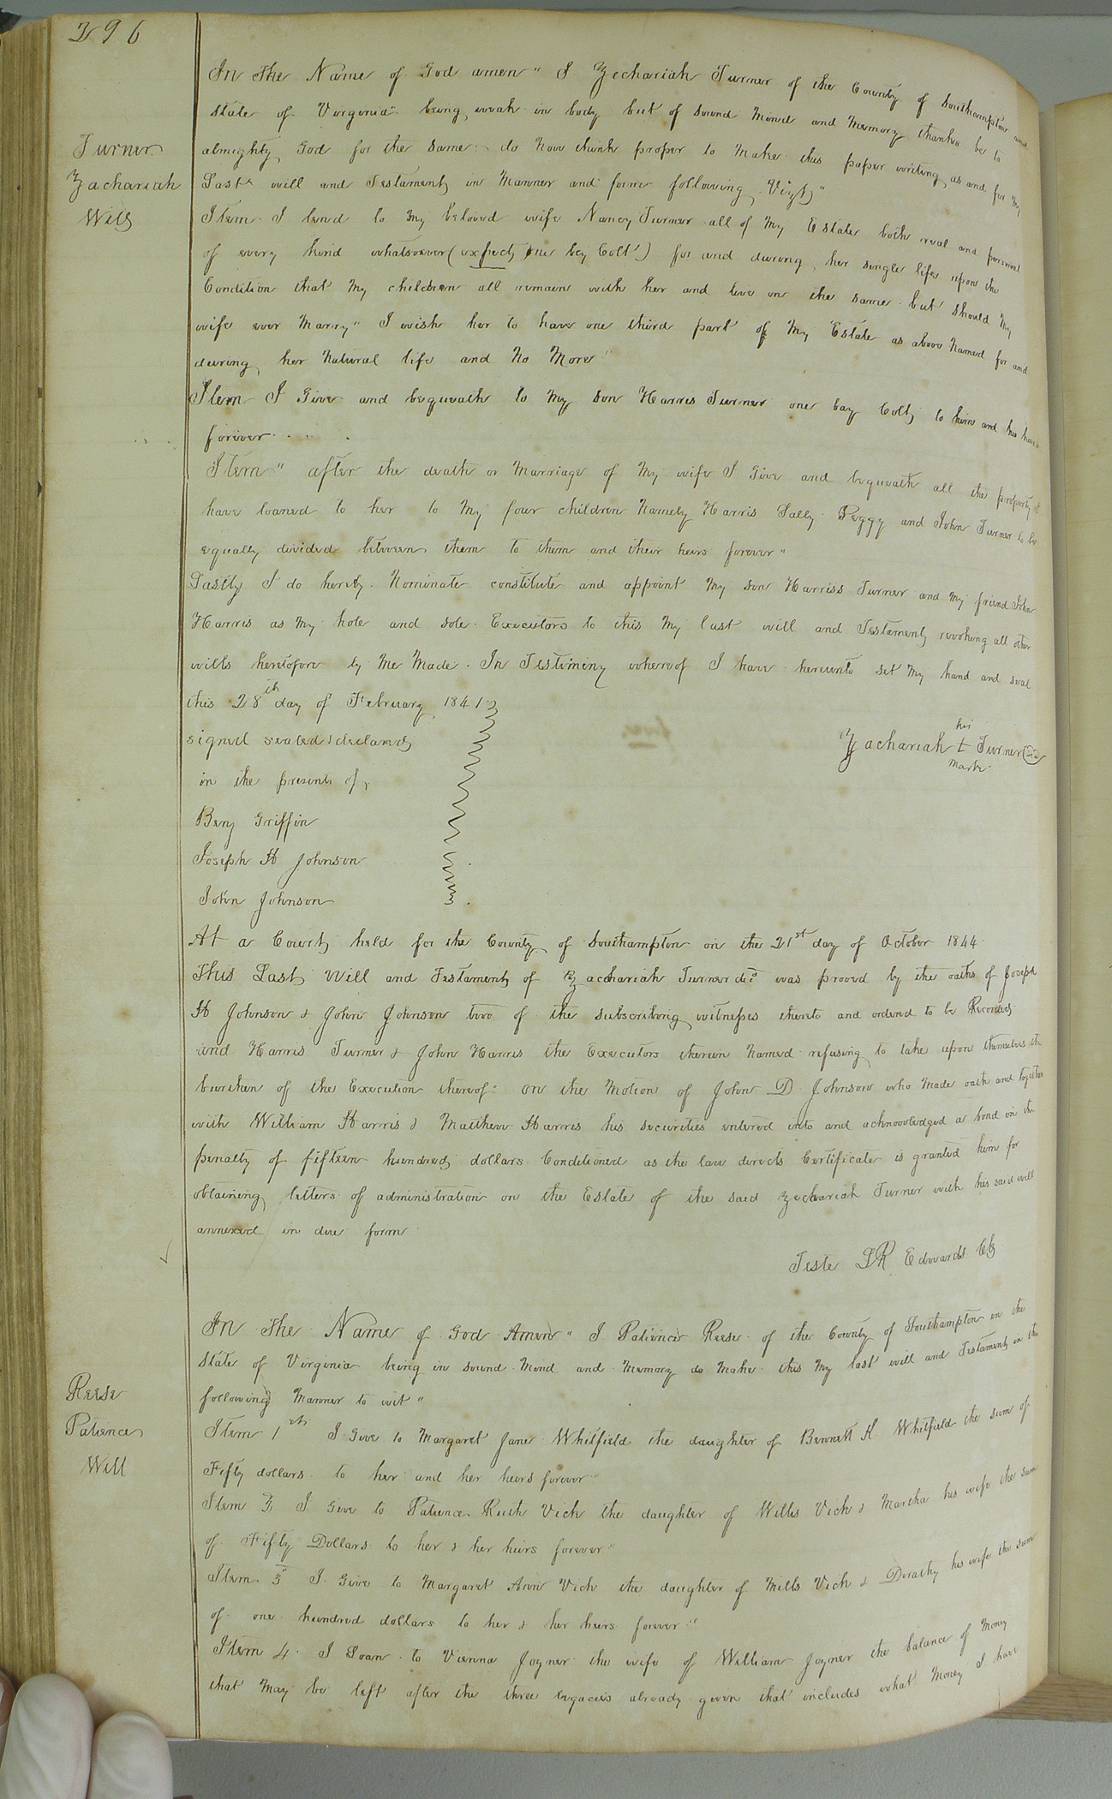 296
Turner
Zachariah
Will
In the Name of God amen" I Zechariah Turner of the County of Southampton and
State of Virginia being weak in body but of sound Mind and Memory thanks be to
almighty God for the same do now think proper to Make this paper writing as and for My
Last will and Testament in Manner and form following Vizt"
Item I lend to My beloved wife Nancy Turner all of My Estate both real and personal
of every kind whatsoever (except one bay Colt) for and during her single life upon the
Condition that My children all remain with her and live on the same but should My
wife ever Marry" I wish her to have one third part of My Estate as above Named for and
during her Natural life and No More"
Item I Give and bequeath to My son Harris Turner one bay Colt to him and his heirs
forever
Item" after the death or Marriage of My wife I Give and bequeath all the property I
have loaned to her to My four children Namely Harris Sally Peggy and John Turner to be
equally divided between them to them and their heirs forever"
Lastly I do hereby Nominate constitute and appoint My son Harriss Turner and My friend John
Harris as My hole and sole Executors to this My last will and Testament revoking all other
wills heretofore by Me Made. In Testiminy whereof I have hereunto set My hand and seal
this 28th day of February 1841
signed sealed & declared
in the presents of
his
Zachariah + Turner
mark
Benj Griffin
Joseph H Johnson
John Johnson
At a Court held for the County of Southampton on the 21st day of October 1844
This Last Will and Testament of Zacchariah Turner decd was proved by the oaths of Joseph
H Johnson & John Johnson two of the subscribing witnesses thereto and ordered to be Recorded
and Harris Turner & John Harris the Executors therein Named refusing to take upon themselves the
burthen of the Execution thereof: on the Motion of John D Johnson who Made oath and together
with William Harris & Matthew Harris his securities entered into and acknowledged a bond in the
penalty of fifteen hundred dollars Conditioned as the law directs Certificate is granted him for
obtaining letters of administration on the Estate of the said Zechariah Turner with his said will
annexed in due form
Teste LR Edwards Clk
Reese
Patience
Will
In The Name of God Amen" I Patience Reese of the County of Southampton on the
State of Virginia being in sound Mind and Memory do Make this My last will and Testament in the
following Manner to wit"
Item 1st I Give to Margaret Jane Whitfield the daughter of Bennett H Whitfield the sum of
Fifty dollars to her and her heirs forever"
Item 2 I Give to Patience Ruth Vick the daughter of Willis Vick & Martha his wife the sum
of Fifty Dollars to her & her heirs forever"
Item 3 I Give to Margaret Ann Vick the daughter of Mills Vick & Dorathy his wife the sum
of one hundred dollars to her & her heirs forever"
Item 4 I Loan to Vienna Joyner the wife of William Joyner the balance of Money
that May be left after the three legacies already given that includes what Money I have